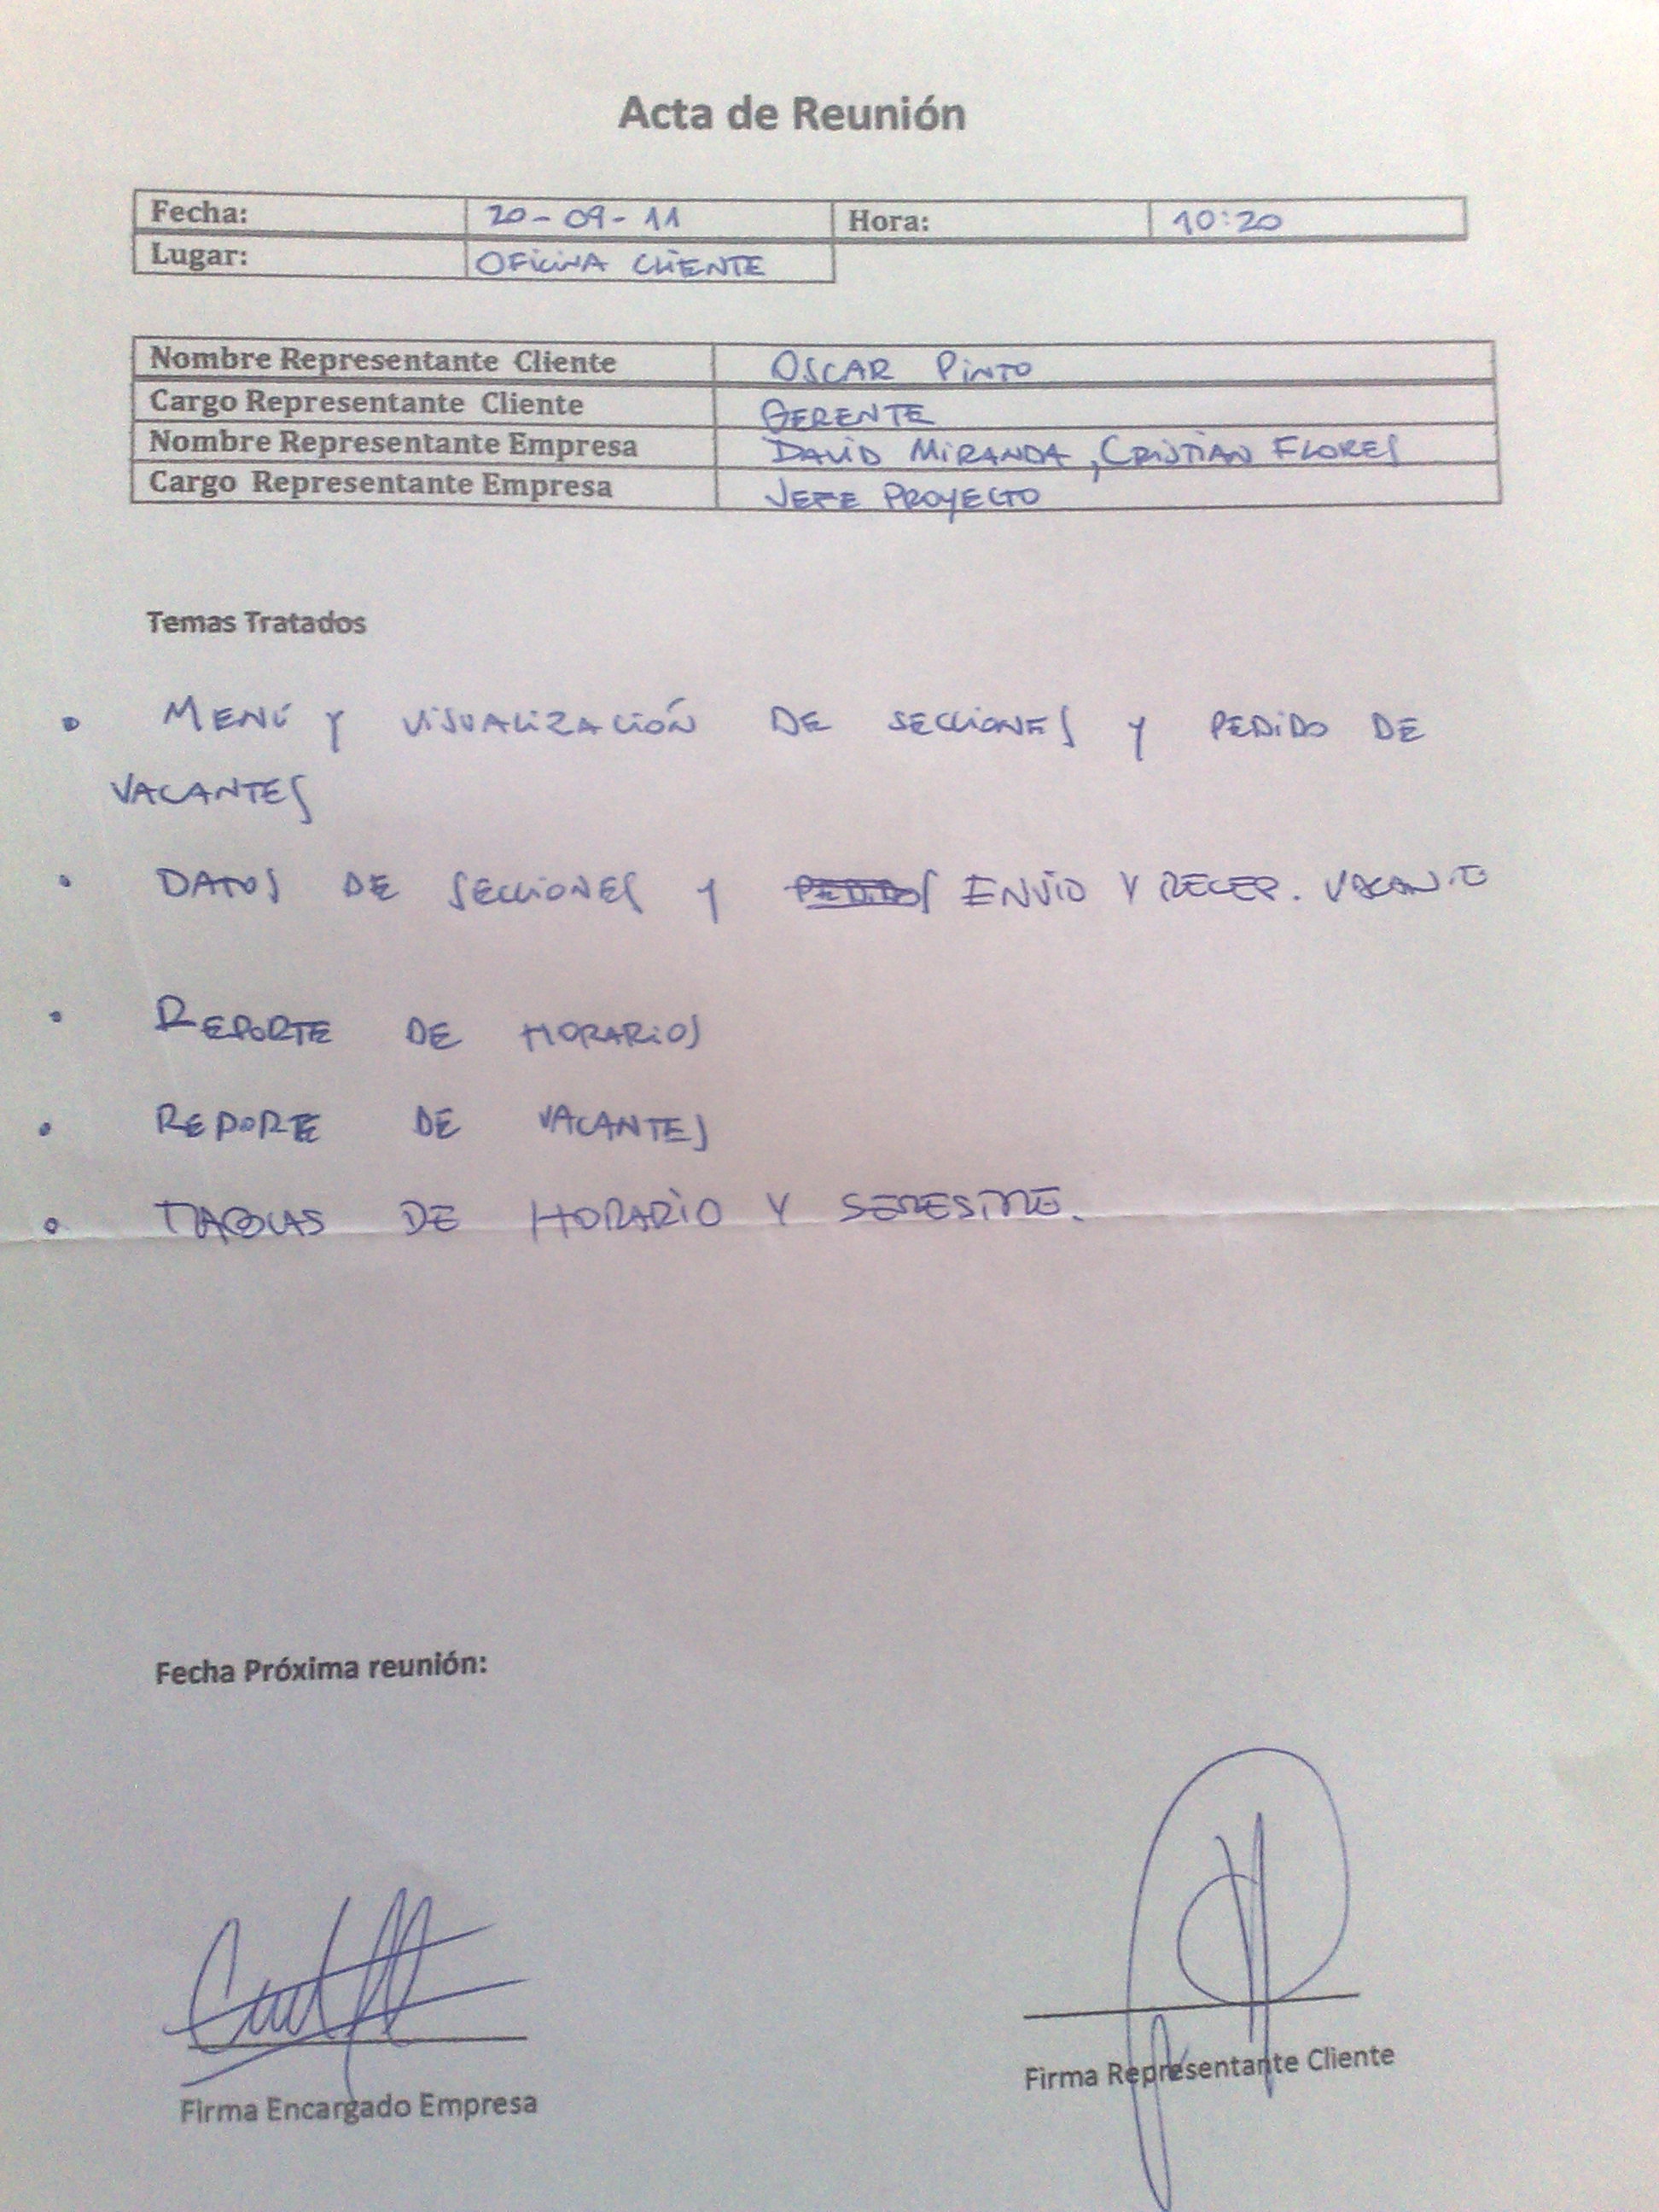 Acta de Reunión
Fecha: 20-09-11 Hora: 10:20
Lugar: OFICINA CLIENTE
Nombre Representante Cliente OSCAR PINTO
Cargo Representante Cliente GERENTE
Nombre Representante Empresa DAVID MIRANDA, CRISTIAN FLORES
Cargo Representante Empresa JEFE PROYECTO
Temas Tratados
• MENÚ Y VISUALIZACIÓN DE SECCIONES Y PEDIDO DE
VACANTES
• DATOS DE SECCIONES Y ENVIO Y RECEP. VACANTE
• REPORTE DE HORARIOS
• REPORTE DE VACANTES
• TABLAS DE HORARIO Y SEMESTRE.
Fecha Próxima reunión:
Firma Encargado Empresa
Firma Representante Cliente